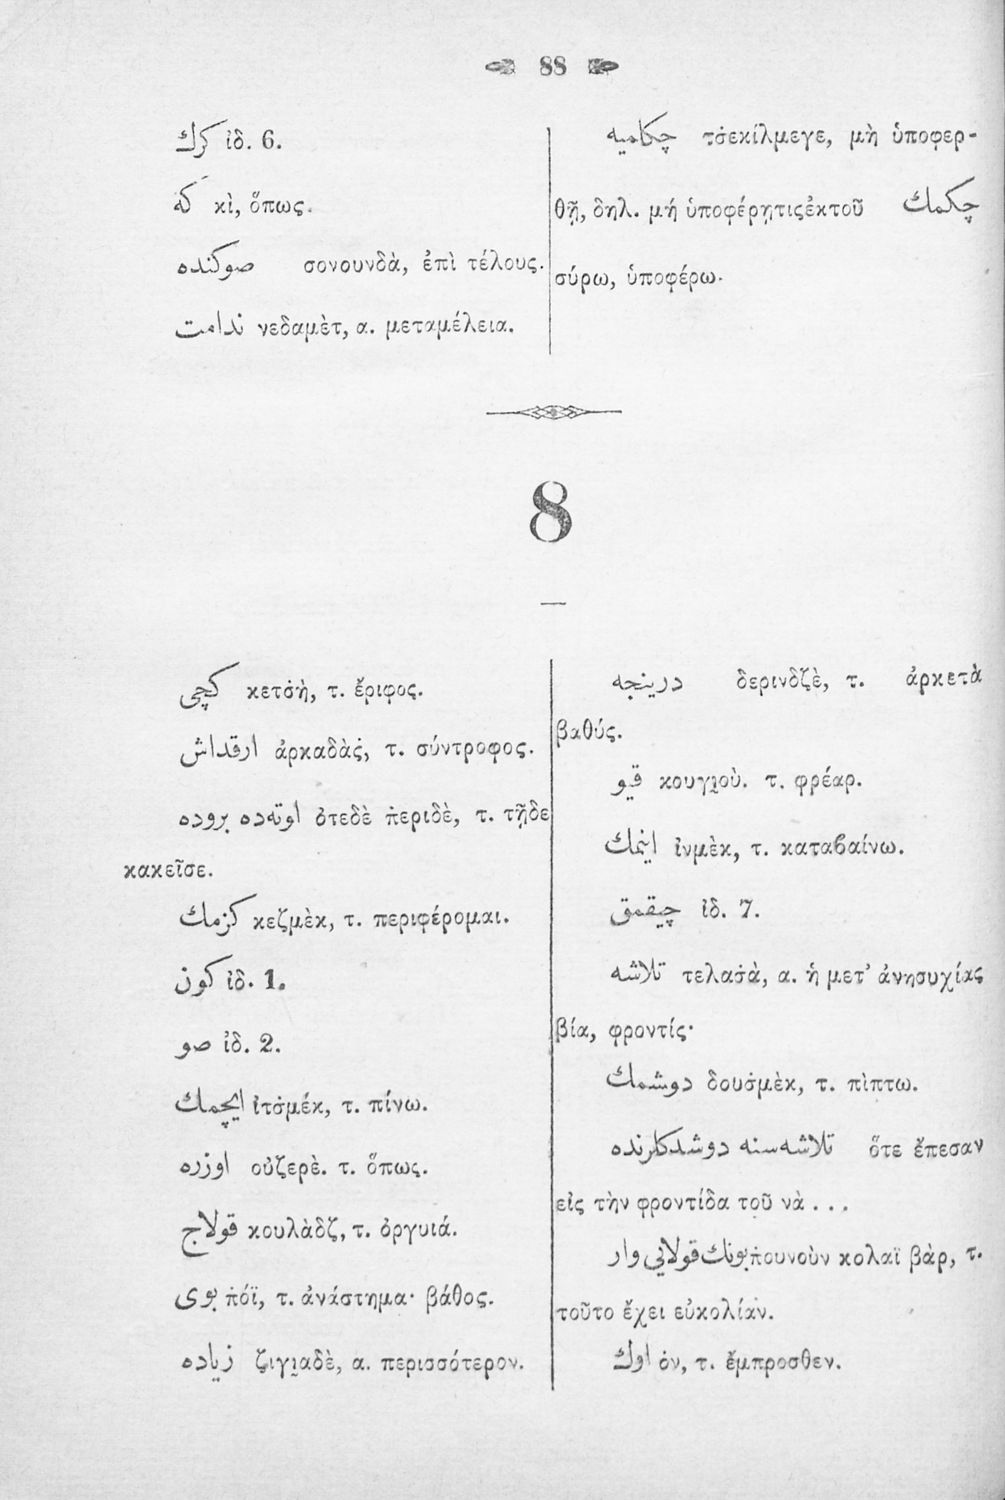 88
كرك ἰδ. 6.
كه κὶ, ὅπως.
صوكنده σονουνδὰ, ἐπὶ τέλους.
ندامت νεδαμὲτ, α. μεταμέλεια.
چكلميه τσ̇εκίλμεγε, μὴ ὑποφερ-
θῇ, δηλ. μή ὑποφέρῃτιςἐκτοῦ چكمك
σύρω, ὑποφέρω.
8
كچی κετσ̇ὴ, τ. ἔριφος.
ارقداش ἀρκαδὰς̇, τ. σύντροφος.
اوته‌ده بروده ὀτεδὲ π̇εριδὲ, τ. τῇδε
κακεῖσε.
كزمك κεζμὲκ, τ. περιφέρομαι.
كون ἰδ. 1.
صو ἰδ. 2.
ايچمك ἰτσ̇μέκ, τ. πίνω.
اوزره οὐζερὲ. τ. ὅπως.
قولاج κουλὰδζ, τ. ὀργυιά.
بوی π̇όϊ, τ. ἀνάστημα· βάθος.
زياده ζιγιαδὲ, α. περισσότερον.
درينجه δερινδζὲ, τ. ἀρκετὰ
βαθύς.
قيو κουγιοὺ. τ. φρέαρ.
اينمك ἰνμὲκ, τ. καταϐαίνω.
چيقمق ἰδ. 7.
تلاشه τελασ̇ὰ, α. ἡ μετ’ ἀνησυχίας
βία, φροντίς·
دوشمك δουσ̇μὲκ, τ. πὶπτω.
تلاشه‌سنه دوشدكلرنده ὅτε ἔπεσαν
εἰς τὴν φροντίδα τοῦ νὰ . . .
بونك قولايی وار π̇ουνοὺν κολαϊ βὰρ, τ.
τοῦτο ἔχει εὐκολίαν.
اوك ὀν, τ. ἔμπροσθεν.